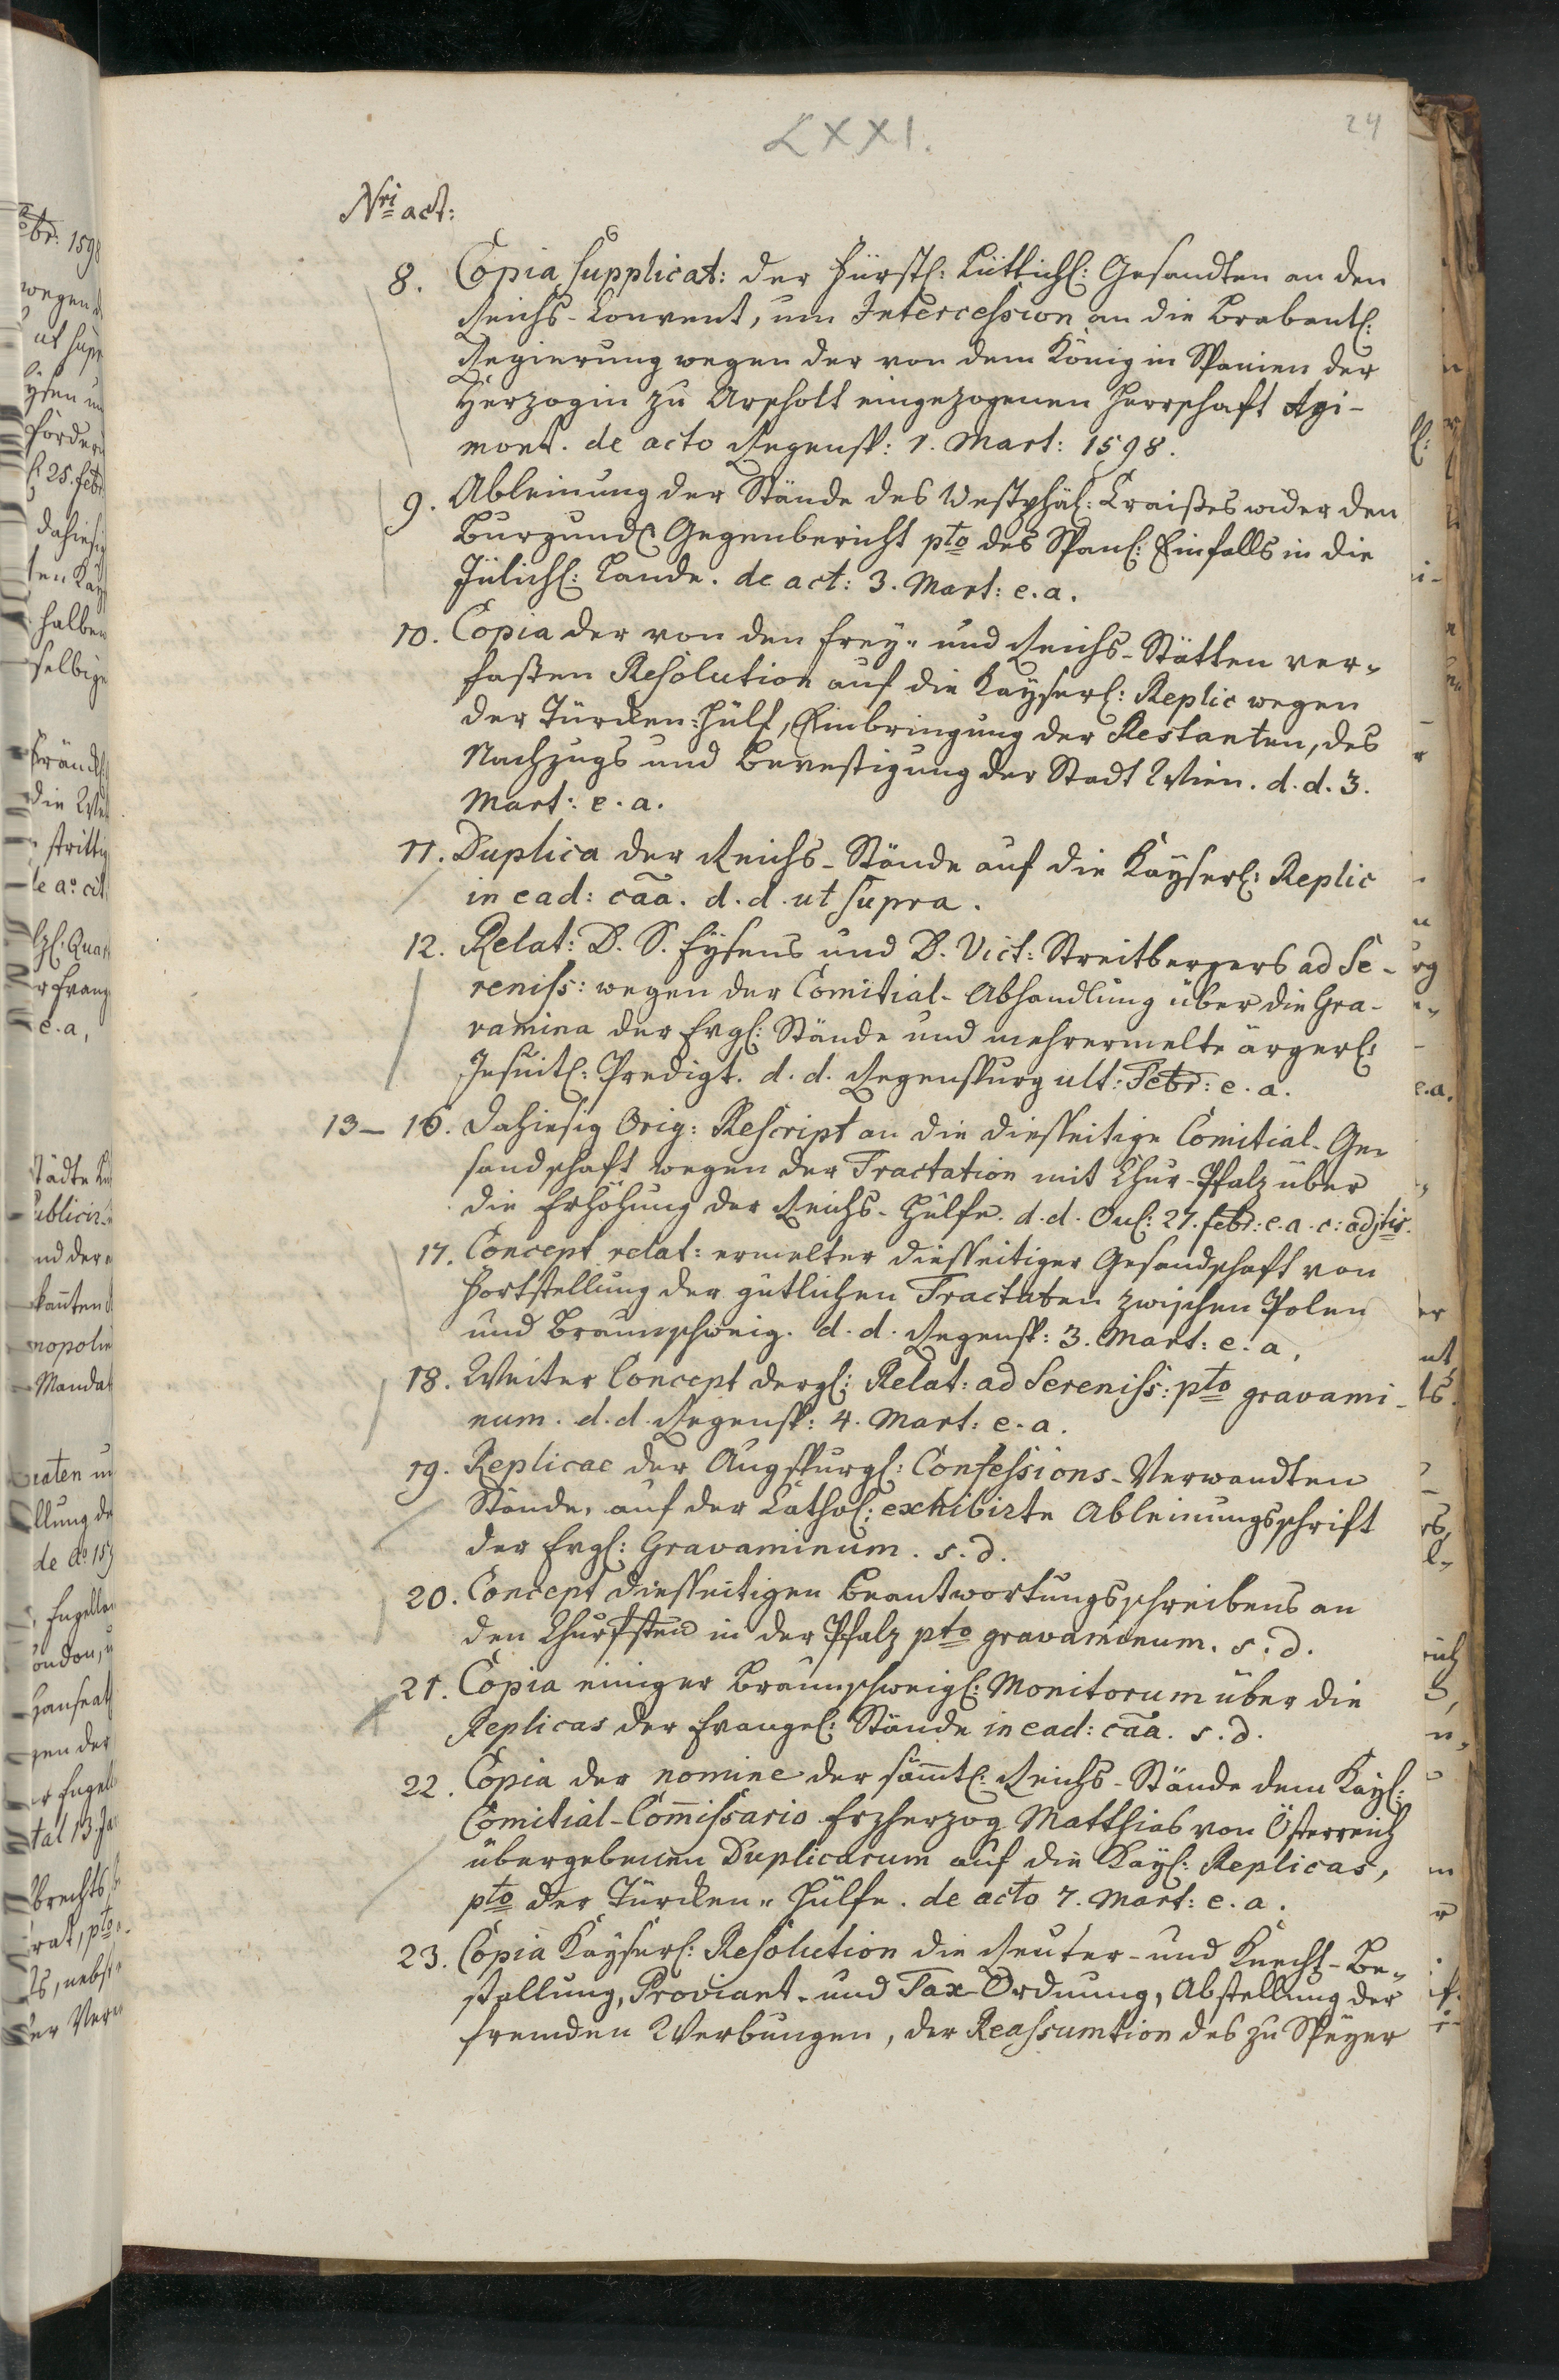 LXXI.
24
Nri act:
8. Copia supplicat: der Fürstl: Lüttichl: Gesandten an den
Reichs-Convent, um Intercession an die Brabantl:
Regierung wegen der von dem König in Spanien der
Herzogin zu Arscholt eingezogenen Herrschaft Agi-
mont. de acto Regensp: 1. Mart: 1598.
9. Ableinung der Stände des Westphäl: Craißes wider den
Burgundl: Gegenbericht pto des Spanl: Einfalls in die
Jülichl: Lande. de act: 3. Mart: e. a.
10. Copia der von den Frey- und Reichs-Stätten ver-
faßten Resolution auf die Kayserl: Replic wegen
der Türcken-Hülf, Einbringung der Restanten, des
Nachzugs und Bevestigung der Stadt Wien. d. d. 3.
Mart: e. a.
11. Duplica der Reichs-Stände auf die Kayserl: Replic
in ead: caa. d. d. ut supra.
12. Relat: D. S. Eysens und D. Vict: Streitbergers ad Se-
reniss: wegen der Comitial-Abhandlung über die Gra-
vamina der Evgl: Stände und mehrermelte ärgerl:
Jesuitl: Predigt. d. d. Regenspurg ult: Febr: e. a.
13-16. Dahiesig Orig: Rescript an die diesseitige Comitial-Ge-
sandschaft wegen der Tractation mit Chur-Pfalz über
die Erhöhung der Reichs-Hülfe. d. d. Onl: 27. febr: e. a. c: adjtis.
17. Concept relat: ermelter diesseitiger Gesandschaft von
Fortstellung der gütlichen Tractaten zwischen Polen
und Braunschweig. d. d. Regensp: 3. Mart: e. a.
18. Weiter Concept dergl: Relat: ad Sereniss: pto gravami-
num. d. d. Regensp: 4. Mart: e. a.
19. Replicae der Augspurgl: Confessions-Verwandten
Stände, auf der Cathol: exhibirte Ableinungsschrift
der Evgl: Gravaminum. s. d.
20. Concept diesseitigen Beantwortungsschreibens an
den Churfsten in der Pfalz pto gravaminum. s. d.
21. Copia einiger Braunschweigl: Monitorum über die
Replicas der Evangel: Stände in ead: caa. s. d.
22. Copia der nomine der sämtl: Reichs-Stände dem Kayl:
Comitial-Comissario Erzherzog Matthias von Österreich
übergebenen Duplicarum auf die Kayl: Replicas,
pto der Türcken-Hülfe. de acto 7. Mart: e. a.
23. Copia Kayserl: Resolution die Reuter- und Knecht-Be-
stallung, Proviant- und Tax-Ordnung, Abstellung der
fremden Werbungen, der Reassumtion des zu Speyer